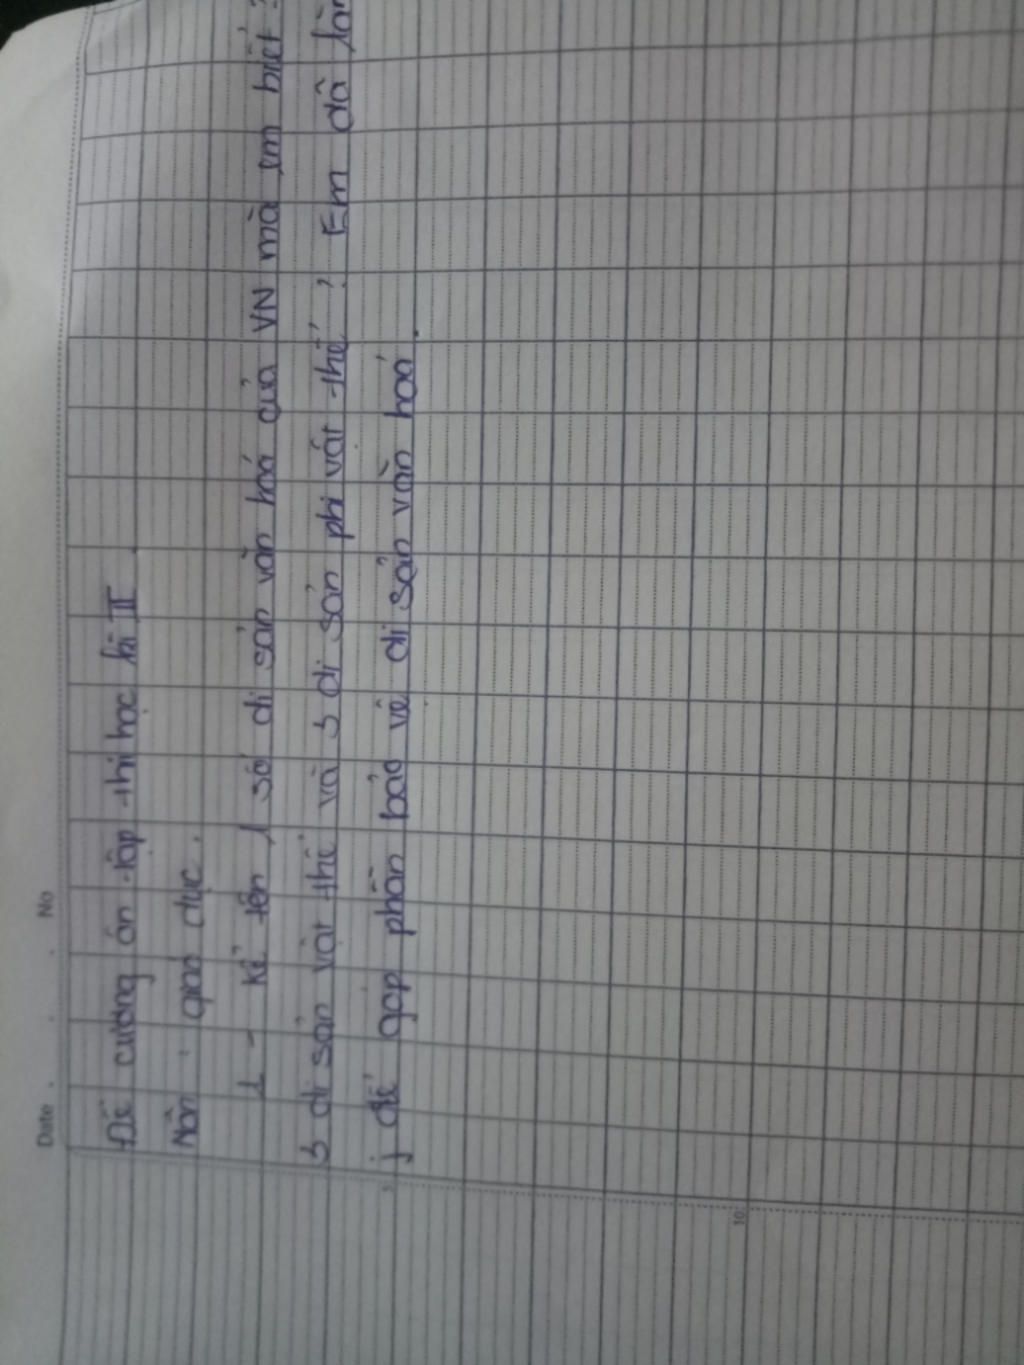 Date . . . No
Đề cương ôn tập thi học kì II.
Môn : giáo dục.
1 - Kể tên 1 số di sản văn hoá của VN mà em biết ?
3 di sản vật thể và 3 di sản phi vật thể ? Em đã làm
j để góp phần bảo vệ di sản văn hoá.
5
10